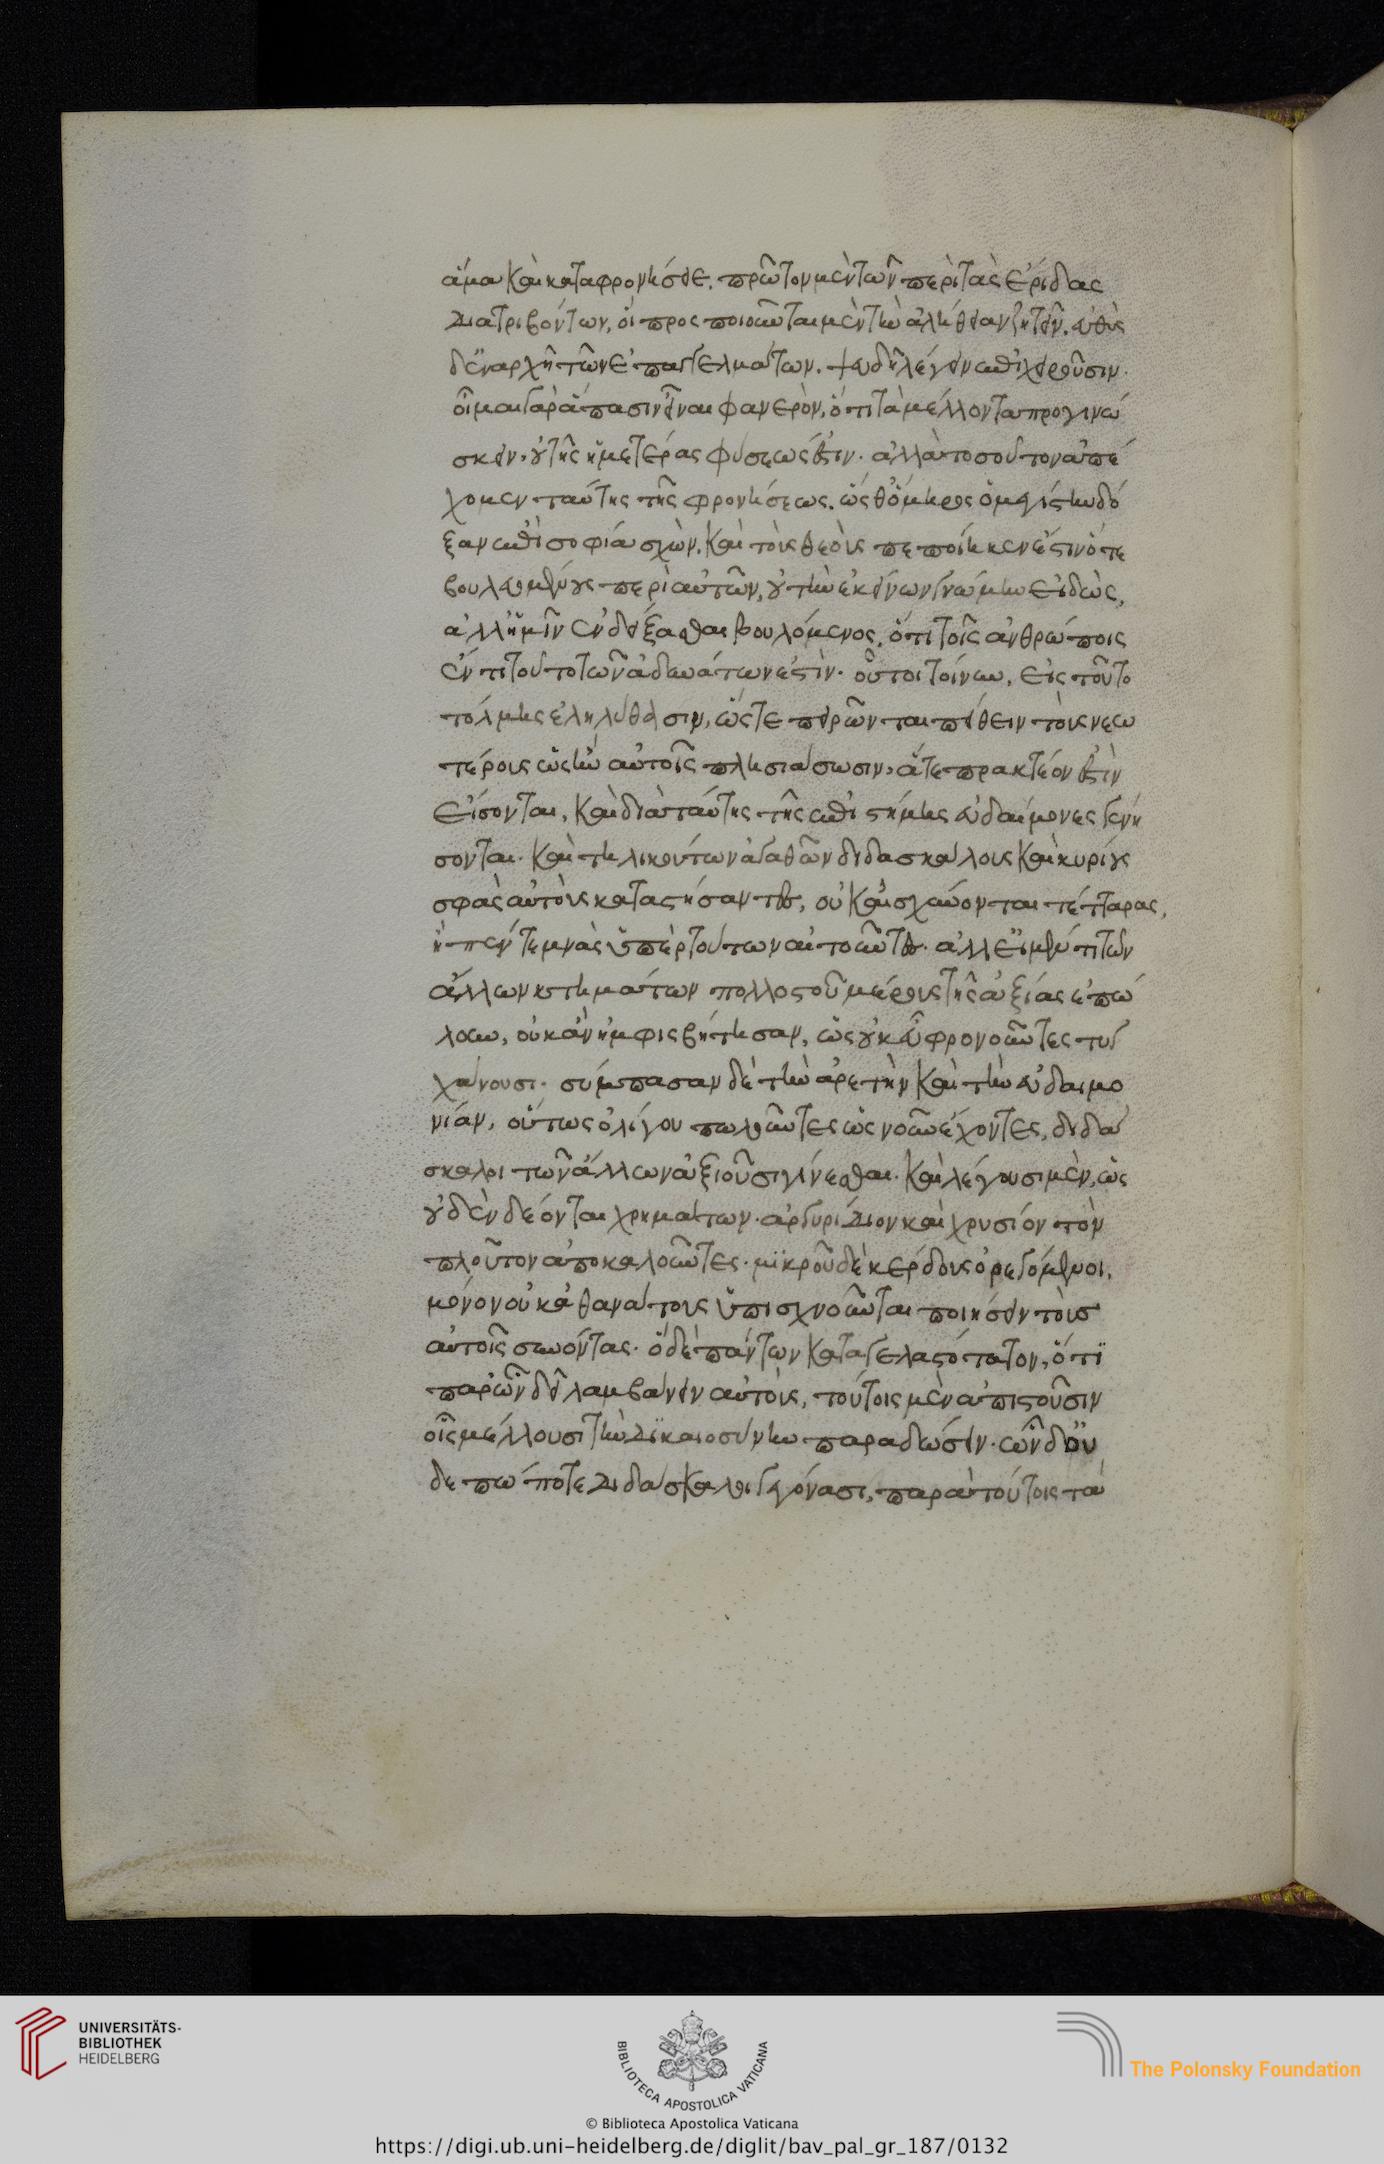 ἅμα καὶ καταφρονήσειε. πρῶτον μὲν τῶν περὶ τὰς ἔριδας
διατριβόντων, οἱ προσποιοῦνται μὲν τὴν ἀλήθειαν ζητεῖν. εὐθὺς
δ' ἐν ἀρχῇ τῶν ἐπαγγελμάτων. ψευδῆ λέγειν ἐπιχειροῦσιν.
οἶμαι γὰρ ἅπασιν εἶναι φανερὸν, ὅτι τὰ μέλλοντα προγινώ
σκειν, οὐ τῆς ἡμετέρας φύσεώς ἐστιν. ἀλλὰ τοσοῦτον ἀπέ
χομεν ταύτης τῆς φρονήσεως. ὥσθ' ὅμηρος ὁ μεγίστην δό
ξαν ἐπὶ σοφία σχὼν. καὶ τοὺς θεοὺς πεποίηκεν ἔστιν ὅτε
βουλευομένους περὶ αὐτῶν, οὐ τὴν ἐκείνων γνώμην εἰδὼς,
ἀλλ' ἡμῖν ἐνδείξασθαι βουλόμενος. ὅτι τοῖς ἀνθρώποις
ἕν τι τοῦτο τῶν ἀδυνάτων ἐστὶν. οὗτοι τοίνυν, εἰς τοῦτο
τόλμης ἐληλύθασιν, ὥστε πειρῶνται πείθειν τοὺς νεω
τέρους ὡς ἢν αὐτοῖς πλησιάσωσιν, ἅ τε πρακτέον ἐστὶν
εἴσονται, καὶ διὰ ταύτης τῆς ἐπιστήμης εὐδαίμονες γενή
σονται. καὶ τηλικούτων ἀγαθῶν διδασκάλους καὶ κυρίους
σφᾶς αὐτοὺς καταστήσαντες, οὐκ αἰσχύνονται τέτταρας,
ἢ πέντε μνὰς ὑπὲρ τούτων αἰτοῦντες. ἀλλ' εἰ μέν τι τῶν
ἄλλων κτημάτων πολλοστοῦ μέρους τῆς ἀξίας ἐπώ
λουν, οὐκ ἂν ἠμφισβήτησαν, ὡς οὐκ εὖ φρονοῦντες τυγ
χάνουσι. σύμπασαν δὲ τὴν ἀρετὴν καὶ τὴν εὐδαιμο
νίαν, οὕτως ὀλίγου πωλοῦντες ὡς νοῦν ἔχοντες, διδά
σκαλοι τῶν ἄλλων ἀξιοῦσι γίνεσθαι. καὶ λέγουσι μὲν, ὡς
οὐδὲν δέονται χρημάτων. ἀργυρίδιον καὶ χρυσίον τὸν
πλοῦτον ἀποκαλοῦντες. μικροῦ δὲ κέρδους ὀρεγόμενοι,
μόνον οὐκ ἀθανάτους ὑπισχνοῦνται ποιήσειν τοὺς
αὐτοῖς συνόντας. ὃ δὲ πάντων καταγελαστότατον, ὅτι
παρ' ὧν δεῖ λαμβάνειν αὐτοὺς, τούτοις μὲν ἀπιστοῦσιν
οἷς μέλλουσι τὴν δικαιοσύνην παραδώσειν. ὧν δ' οὐ
δὲ πώποτε διδάσκαλοι γεγόνασι, παρὰ τούτοις τὰ
UNIVERSITÄTS-
BIBLIOTHEK
HEIDELBERG
BIBLIOTECA APOSTOLICA VATICANA
The Polonsky Foundation
© Biblioteca Apostolica Vaticana
https://digi.ub.uni-heidelberg.de/diglit/bav_pal_gr_187/0132